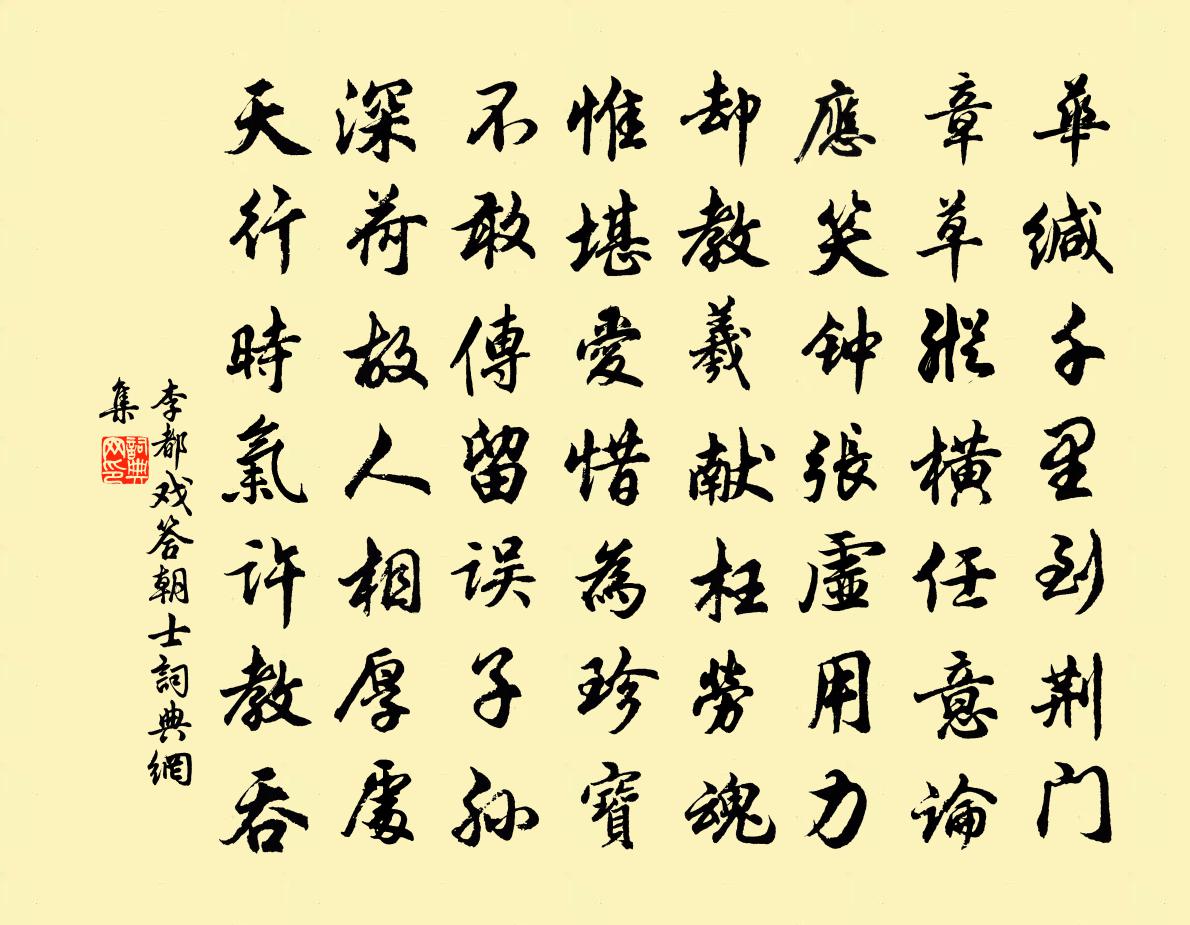 華缄千里到荆门
章草縱橫任意論
應笑钟張虛用力
却教羲献枉勞魂
惟堪愛惜為珍寶
不敢傳留误子孙
深荷故人相厚處
天行時氣许教吞
李都戏答朝士詞典網
集
詞典网印